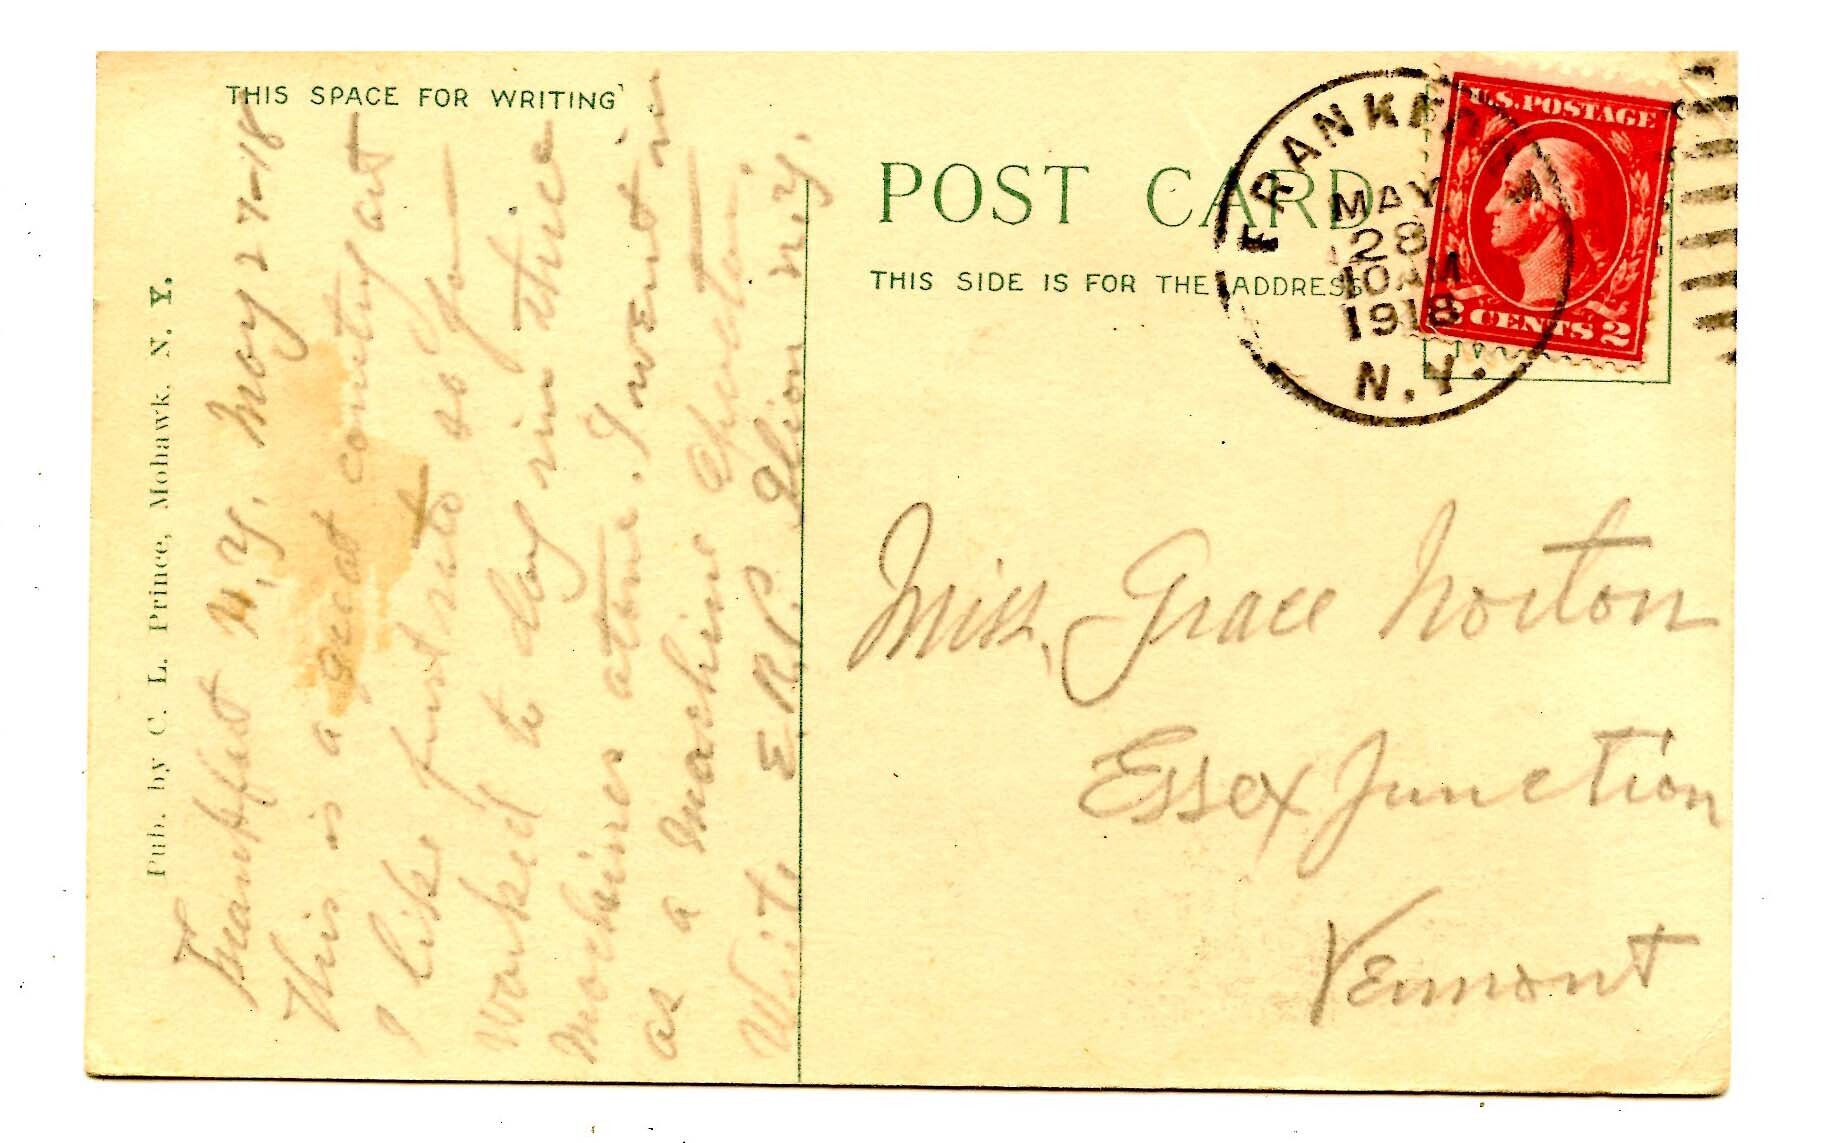 THIS SPACE FOR WRITING
Frankfort N.Y. May 27-18
This is a great country out
I like first rate so far
Worked to day in three
Machines atone. I went in
as a Machine Operator
Write E.R.P. Ilion N.Y.
Pub. by C. L. Prince, Mohawk, N. Y.
POST CARD
THIS SIDE IS FOR THE ADDRESS
FRANKFORT
MAY
28
10 AM
1918
N.Y.
U.S. POSTAGE
2 CENTS 2
Miss, Grace Norton
Essex Junction
Vermont